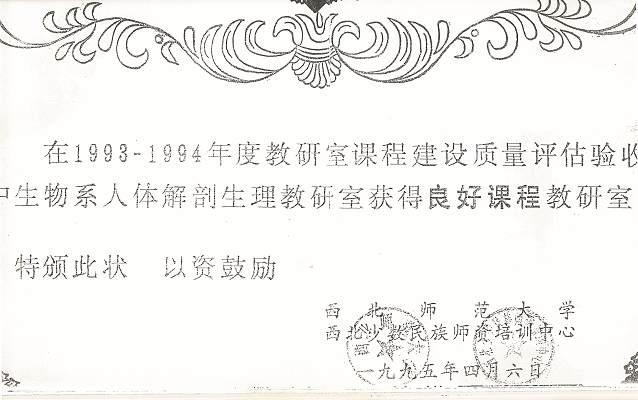 在1993-1994年度教研室课程建设质量评估验收
中生物系人体解剖生理教研室获得良好课程教研室
特颁此状 以资鼓励
西北师范大学
西北少数民族师资培训中心
一九九五年四月六日